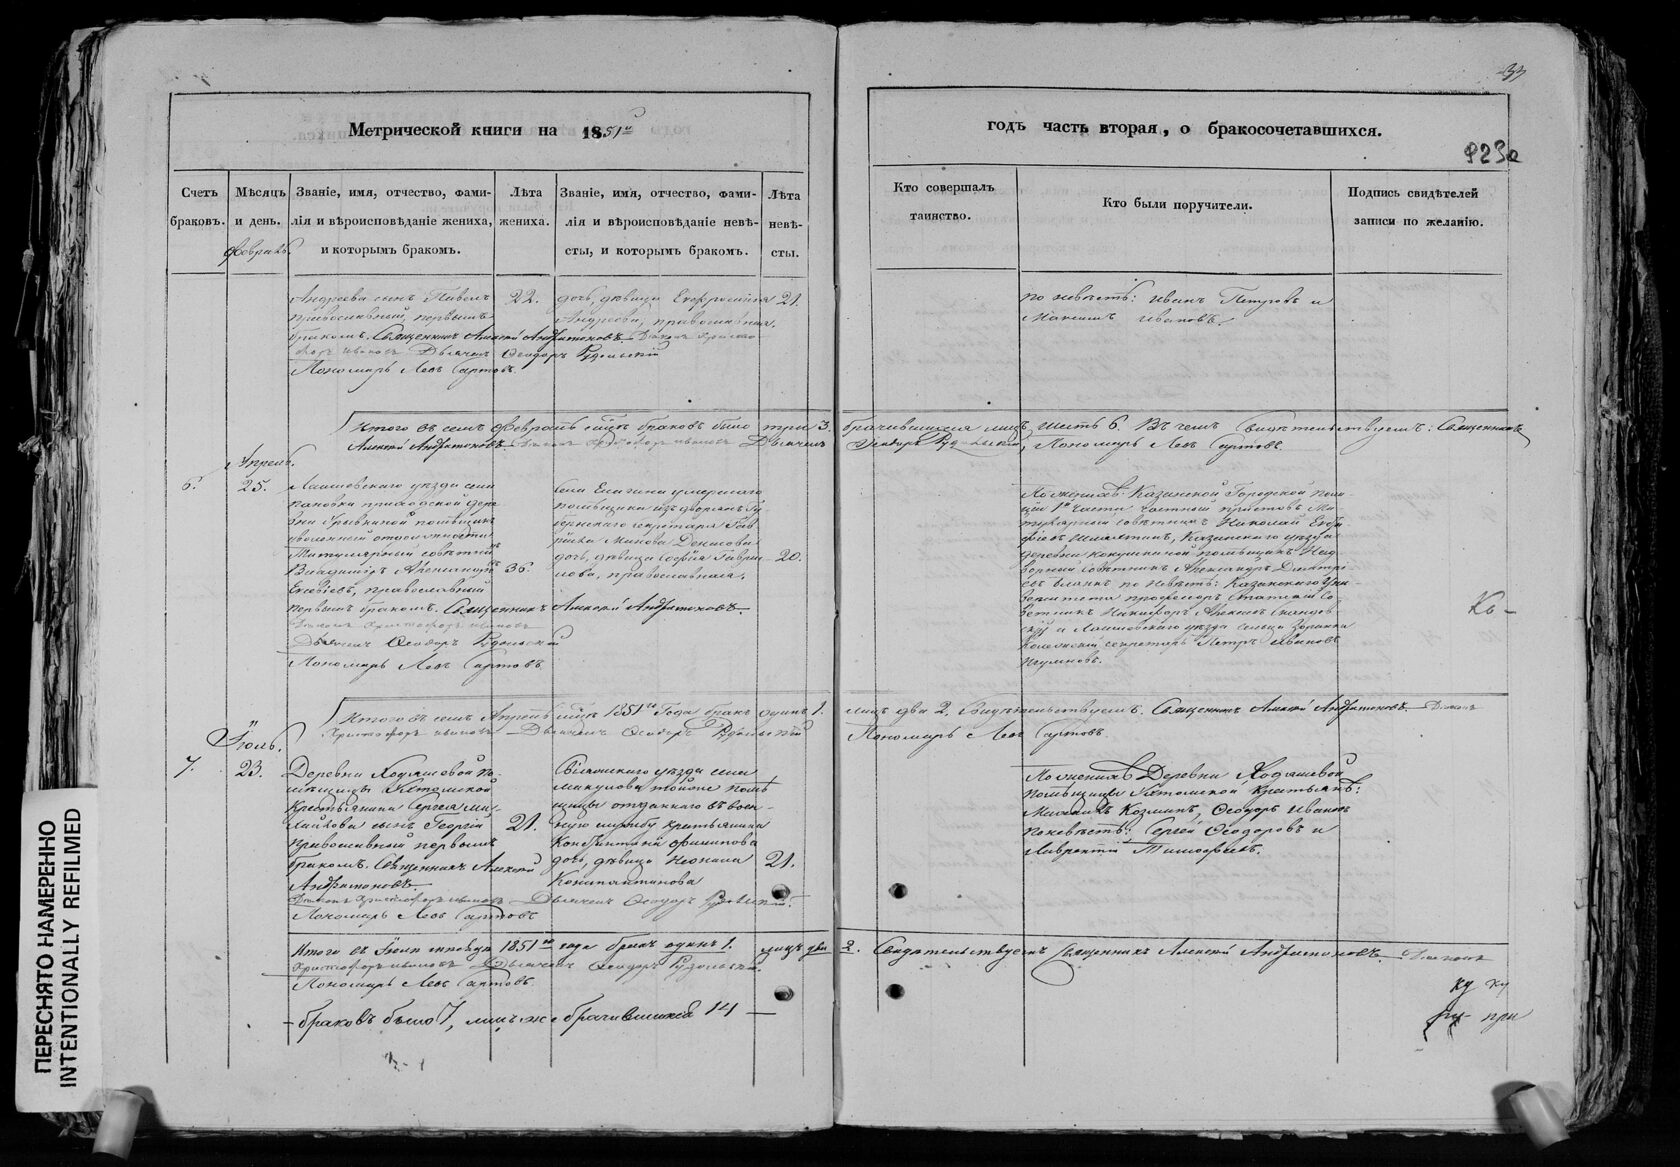 33
Метрической книги на 1851го
годъ часть вторая, о бракосочетавшихся.
923
Счетъ браковъ.
Мѣсяцъ и день.
Званіе, имя, отчество, фами-
лія и вѣроисповѣданіе жениха,
и которымъ бракомъ.
Лѣта жениха.
Званіе, имя, отчество, фами-
лія и вѣроисповѣданіе невѣ-
сты, и которымъ бракомъ.
Лѣта невѣ-
сты.
Кто совершалъ
таинство.
Кто были поручители.
Подпись свидѣтелей
записи по желанію.
Февраль.
Андреева сынъ Павелъ
православный, первымъ
бракомъ. Священникъ Алексѣй Андритоновъ
Дьячекъ Ѳеодоръ Рудольскій
Пономарь Левъ Сартовъ.
22.
дочь, дѣвица Евфросинія
Андреева, православная.
21.
по невѣстѣ: Иванъ Петровъ и
Максимъ Ивановъ.
Итого въ семъ Февралѣ мѣсяцѣ браковъ было три 3. брачившихся лицъ шесть 6. Въ чемъ свидѣтельствуемъ: Священникъ
Алексѣй Андритоновъ. Дьяконъ Христофоръ Ивановъ Дьячекъ Ѳеодоръ Рудольскій, Пономарь Левъ Сартовъ.
Апрель.
6.
25.
Лаишевскаго уѣзда села
приходской дере-
помѣщикъ
Титулярный совѣтникъ
Владиміръ
православный
первымъ бракомъ. Священникъ Алексѣй Андритоновъ.
Дьяконъ Христофоръ Ивановъ
Дьячекъ Ѳеодоръ Рудольскій
Пономарь Левъ Сартовъ
36.
села умершаго
помѣщика изъ дворянъ Гу-
бернскаго секретаря Гав-
Денисова
дочь, дѣвица Софія Гаври-
лова, православная.
20.
По женихѣ: Казанской Городской Поли-
ціи 1й части частный приставъ Ти-
тулярный совѣтникъ Николай
Казанскаго уѣзда
деревни помѣщикъ Над-
ворный совѣтникъ Александръ Дмитрі-
евъ по невѣстѣ: Казанскаго Уни-
верситета профессоръ Статскій Со-
вѣтникъ
и Лаишевскаго уѣзда сельца
Коллежскій секретарь Петръ Ивановъ
Наумовъ.
Итого въ семъ Апрелѣ мѣсяцѣ 1851го года бракъ одинъ 1. лицъ два 2. Свидѣтельствуемъ. Священникъ Алексѣй Андритоновъ. Дьяконъ
Христофоръ Ивановъ Дьячекъ Ѳеодоръ Рудольскій Пономарь Левъ Сартовъ.
Іюль.
7.
23.
Деревни Ходяшевой по-
мѣщицы Ахтомской
крестьянина Сергея Ми-
хайлова сынъ Георгій
православный первымъ
бракомъ. Священникъ Алексѣй
Андритоновъ.
Дьяконъ Христофоръ Ивановъ Дьячекъ Ѳеодоръ Рудольскій.
Пономарь Левъ Сартовъ
21.
Свіяжскаго уѣзда села
Макулова тойже помѣ-
щицы отданнаго въ воен-
ную службу крестьянина
Константина Филипова
дочь, дѣвица Неонила
Константинова
21.
По женихѣ Деревни Ходяшевой
помѣщицы Ахтомской крестьянѣ:
Михаилъ Козминъ, Ѳеодоръ Ивановъ
По невѣстѣ: Сергей Ѳеодоровъ и
Лаврентій Тимофеевъ.
Итого въ Іюлѣ мѣсяцѣ 1851го года бракъ одинъ 1. лицъ два 2. Свидѣтельствуемъ Священникъ Алексѣй Андритоновъ. Дьяконъ
Христофоръ Ивановъ Дьячекъ Ѳеодоръ Рудольскій.
Пономарь Левъ Сартовъ.
браковъ было 7, лицъ же брачившихся 14
ПЕРЕСНЯТО НАМЕРЕННО
INTENTIONALLY REFILMED